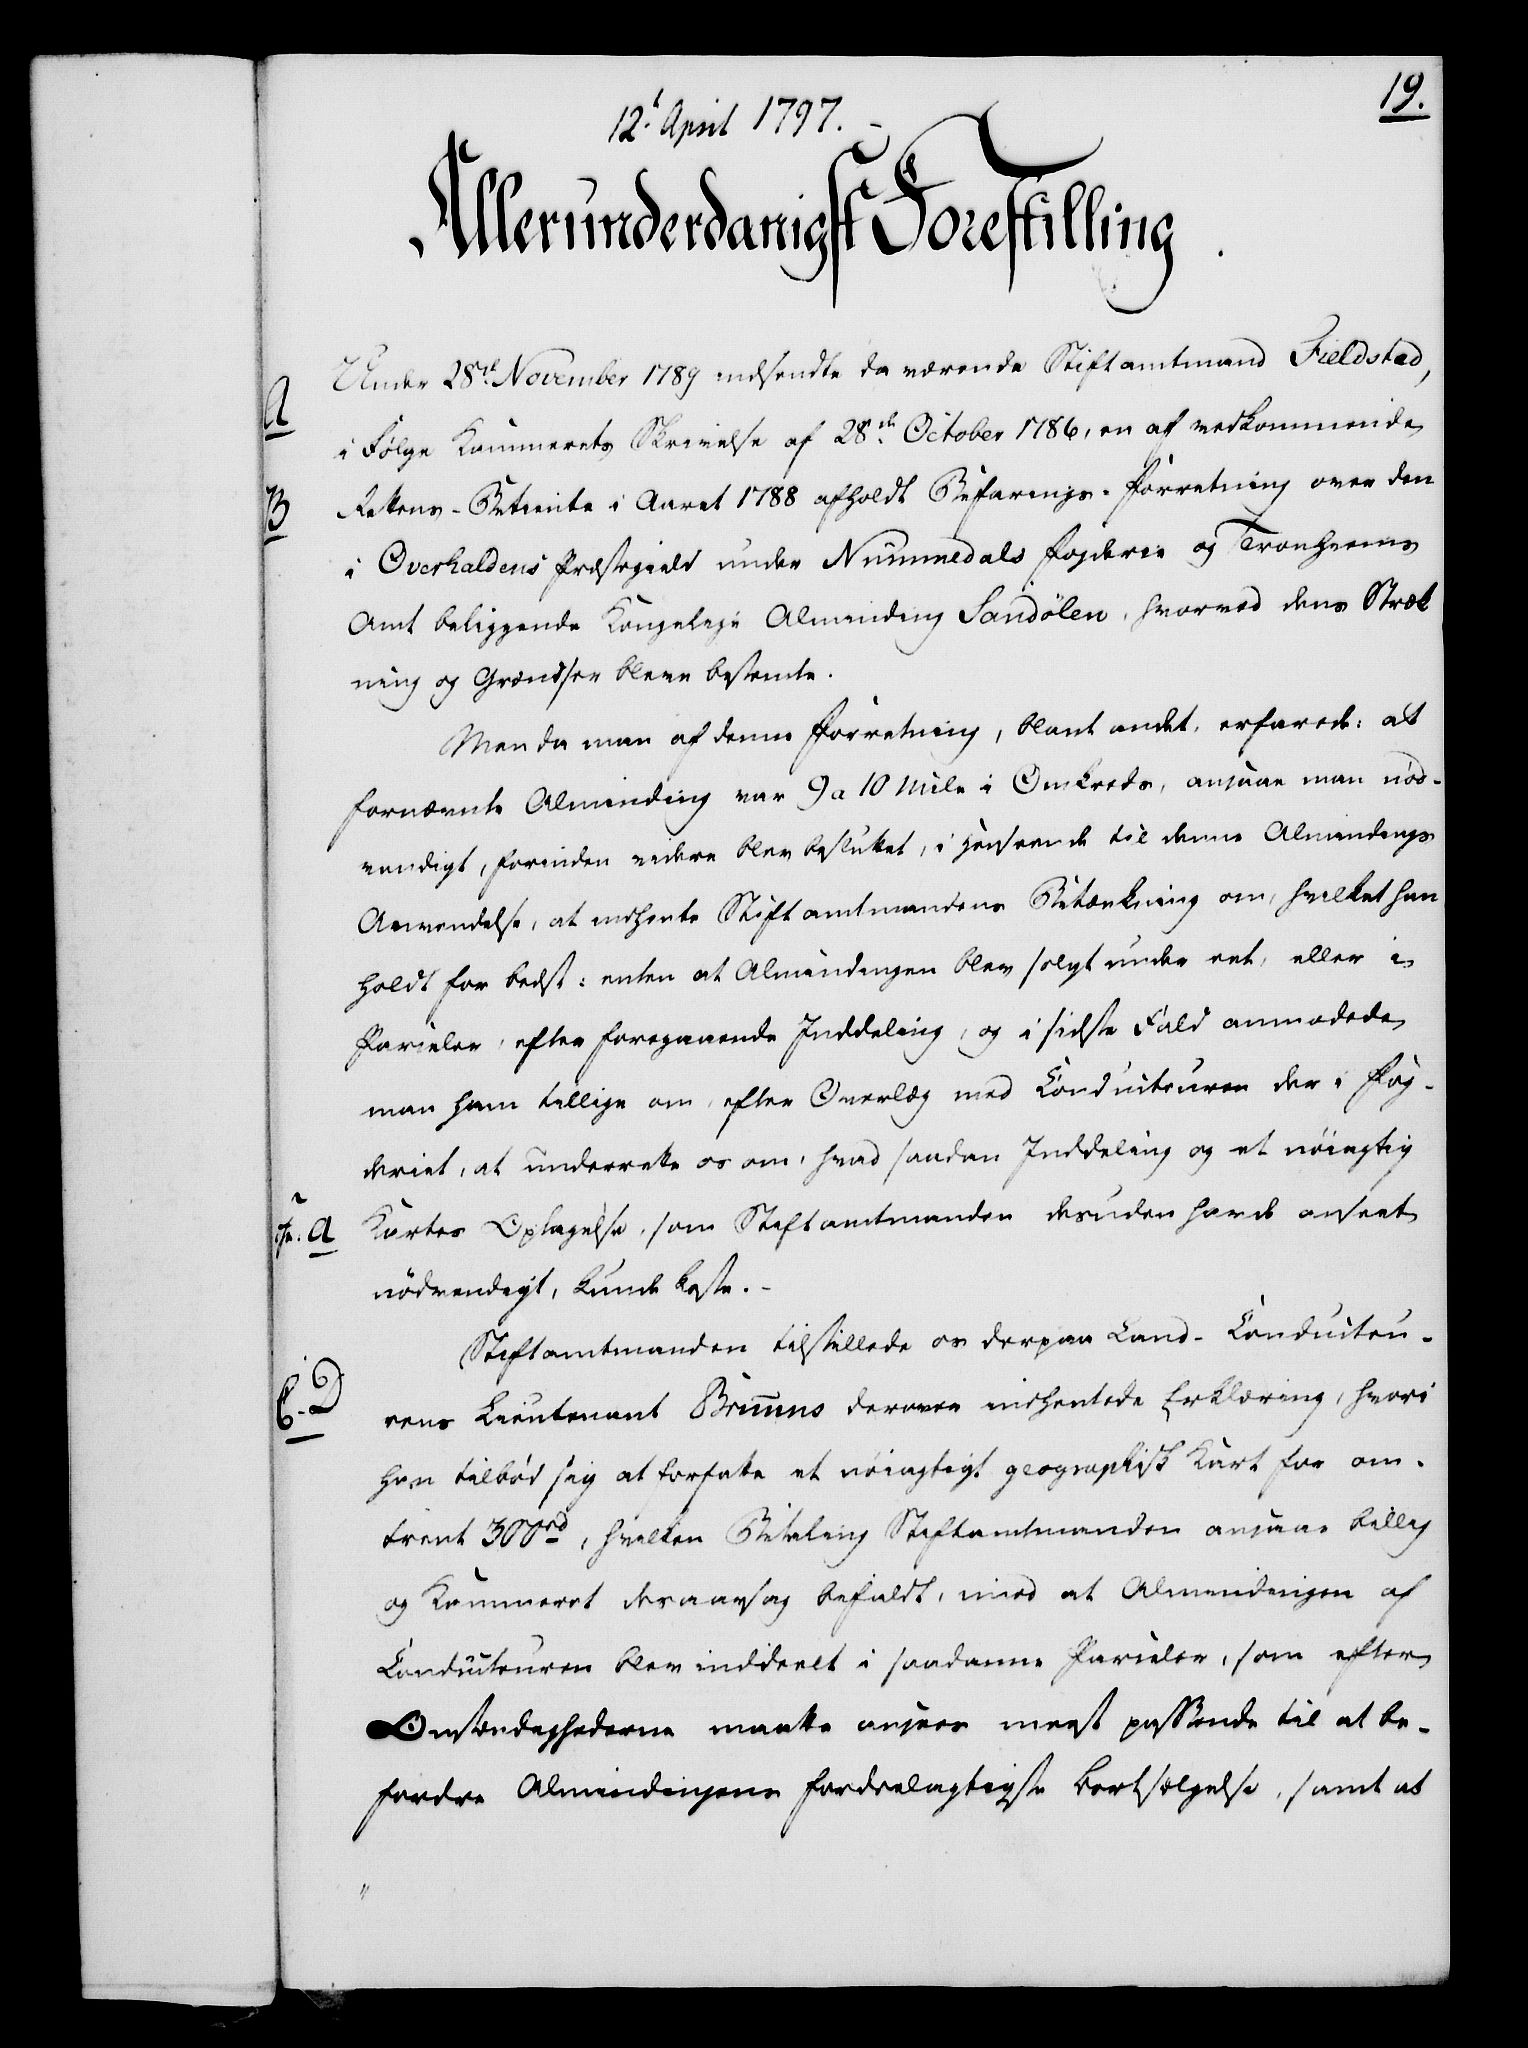 19.
12t April 1797. -
Allerunderdanigst Forestilling.
Under 28de November 1789 indsendte da værende Stiftamtmand Fieldstad,
A
i Følge Kammerets Skrivelse af 28de October 1786, en af vedkommende
B
Rettens-Betiente i Aaret 1788 afholdt Befarings-Forretning over den
i Overhaldens Præstegield under Nummedals Fogderie og Tronhiems
Amt beliggende Kongelige Alminding Sandölen, hvorved dens Stræk
ning og Grændser bleve bestemte.
Men da man af denne Forretning, blant andet, erfarede: at
fornævnte Alminding var 9 a 10 Mile i Omkreds, ansaae man nöd-
vendigt, forinden videre blev besluttet, i Henseende til denne Almindings
Anvendelse, at indhente Stiftamtmandens Betænkning om, hvilket han
holdt for bedst: enten at Almindingen blev solgt under eet, eller i
Parceler, efter foregaaende Inddeling, og i sidste Fald anmodede
man ham tillige om, efter Overlæg med Conducteuren der i Fog-
deriet, at underrette os om, hvad saadan Inddeling og et nöiagtig
A
Kortes Optagelse, som Stiftamtmanden desuden havde anseet
nödvendigt, kunde koste. -
Stiftamtmanden tilstillede os derpaa Land-Conducteu-
C. D
rens Lieutenant Bruuns derover indhentede Erklæring, hvori
han tilböd sig at forfatte et nöiagtigt geographisk Kart for om-
trent 300rd, hvilken Betaling Stiftamtmanden ansaae billig
og Kammeret desaarsag bifaldt, imod at Almindingen af
Conducteuren blev inddeelt i saadanne Parceler, som efter
Omstændighederne maatte ansees meest passende til at be-
fordre Almindingens fordeelagtigste Bortsælgelse, samt at
"